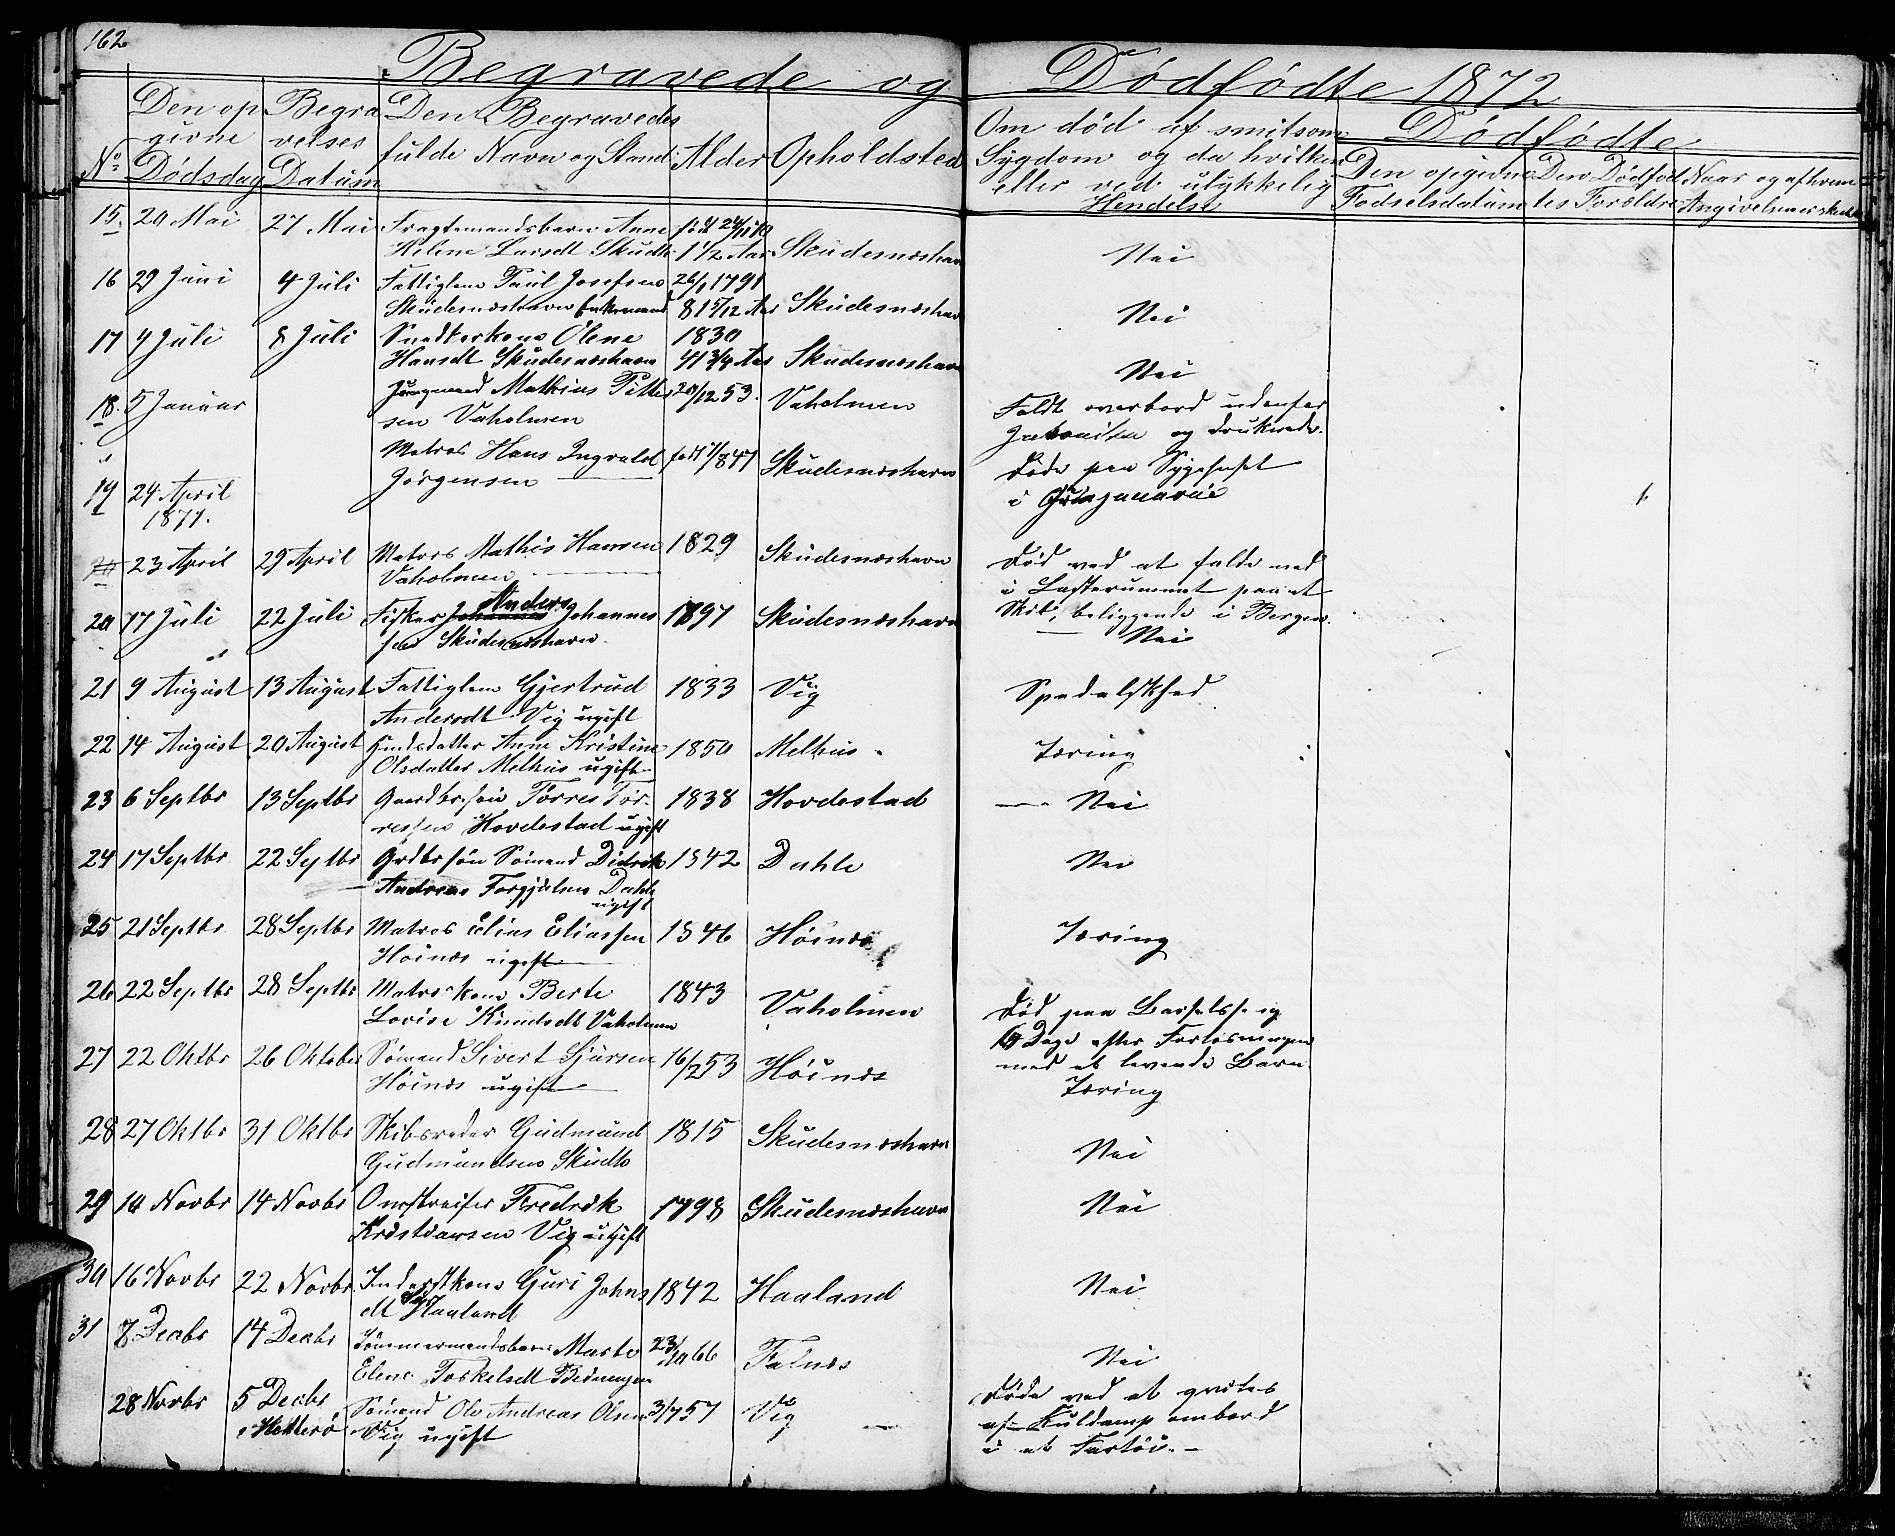 162
Begravede og Dødfødte 1872
No
Den opgivne Dødsdag
Begravelses Datum
Den Begravedes fulde Navn og Stand
Alder
Opholdsted
Om død af smitsom Sygdom og da hvilken eller ved ulykkelig Hendelse
Dødfødte
Den opgivne Fødselsdatum
Den Dødfødtes Forældre
Naar og af hvem Angivelsen er skeet
15 20 Mai 27 Mai Fragtemandsbarn Anne født 24/11 70
Helene Larsdt Skudh 1 1/2 Aar Skudesnæshavn Nei
16 29 Juni 4 Juli Fattiglem Paul Josefsen 26/1 1791
Skudesnæshavn Enkemand 81 5/12 Aar Skudesnæshavn Nei
17 4 Juli 8 Juli Snedkerkone Olene 1830
Hansdt Skudesnæshavn 41 3/4 Aar Skudesnæshavn Nei
18 5 Januar Jungmand Mathias Petter 20/12 53. Vaholmen Faldt overbord udenfor
sen Vaholmen og druknede.
Matros Hans Ingvald født 1/8 47 Skudesnæshavn Døde paa Sygehuset
19 24 April Jørgensen i
1871.
20 23 April 29 April Matros Mathis Hansen 1829 Skudesnæshavn Død ved at falde ned
Vaholmen i Lasterummet paa et
Skib, beliggende i Bergen.
20 17 Juli 22 Juli Fisker Johannes Anders Johannes 1797 Skudesnæshavn Nei
sen Skudesnæshavn.
21 9 August 13 August Fattiglem Gjertrud 1833 Vig Spedalskhed
Andersdt Vig ugift
22 14 August 20 August Anne Kristine 1850 Melhus Tæring
Olsdatter Melhus ugift
23 6 Septbr 13 Septbr Gaardbrsøn Torres Tor- 1838 Hovdestad Nei
ressen Hovdestad ugift
24 17 Septbr 22 Septbr Grdbrsøn Sømand Didrik 1842 Dahle Nei
Andreas Torgjælsen Dahle
ugift
25 21 Septbr 28 Septbr Matros Elias Eliassen 1846 Høinæs Tæring
Høinæs ugift
26 22 Septbr 28 Septbr Matroskone Berte 1843 Vaholmen Død paa Barselseng
Lovise Knudsdt Vaholmen Dage efter Forløsningen
med et levende Barn
27 22 Oktbr 26 Oktober Sømand Sivert Sjursen 16/2 53 Høinæs Tæring
Høinæs ugift
28 27 Oktbr 31 Oktbr Skibsreder Gudmund 1815 Skudesnæshavn Nei
Gudmundsen Skudh
29 10 Novbr 14 Novbr Omstreifer Fredrik 1798 Skudesnæshavn Nei
Kristiansen Vig ugift
30 16 Novbr 22 Novbr Inderstkone Guri Johns 1842 Haaland Nei
dt Haaland
31 7 Decbr 14 Decbr Tømmermandsbarn Marte 23/10 66 Falnæs Nei
Elene Torkelsdt
28 Novbr 5 Decbr Sømand Ole Andreas Olsen 3/7 57 Vig Døde ved at qvæles
i Hitterø Vig ugift af Kuldamp ombord
i et Fartøi.